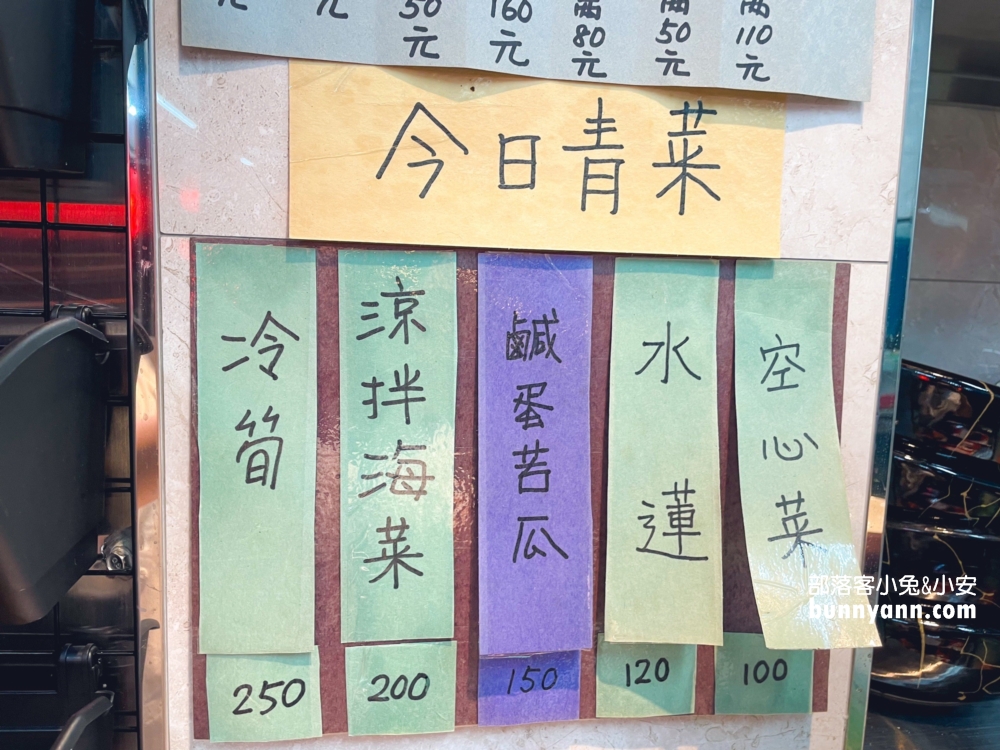 元 元 50元 160元 兩80元 兩50元 兩110元
今日青菜
空心菜 100
水蓮 120
鹹蛋苦瓜 150
涼拌海菜 200
冷筍 250
部落客小兔&小安
bunnyann.com